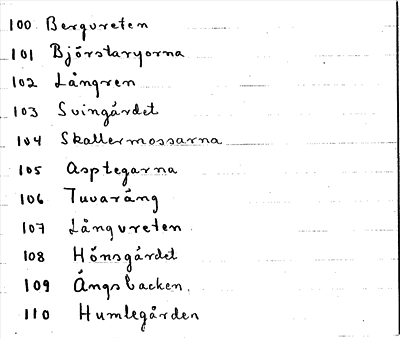 100 Bergvreten
101 Björstaryorna
102 Långren
103 Svingärdet
104 Skallermossarna
105 Asptegarna
106 Tuvaräng
107 Långvreten
108 Hönsgärdet
109 Ängsbacken.
110 Humlegården